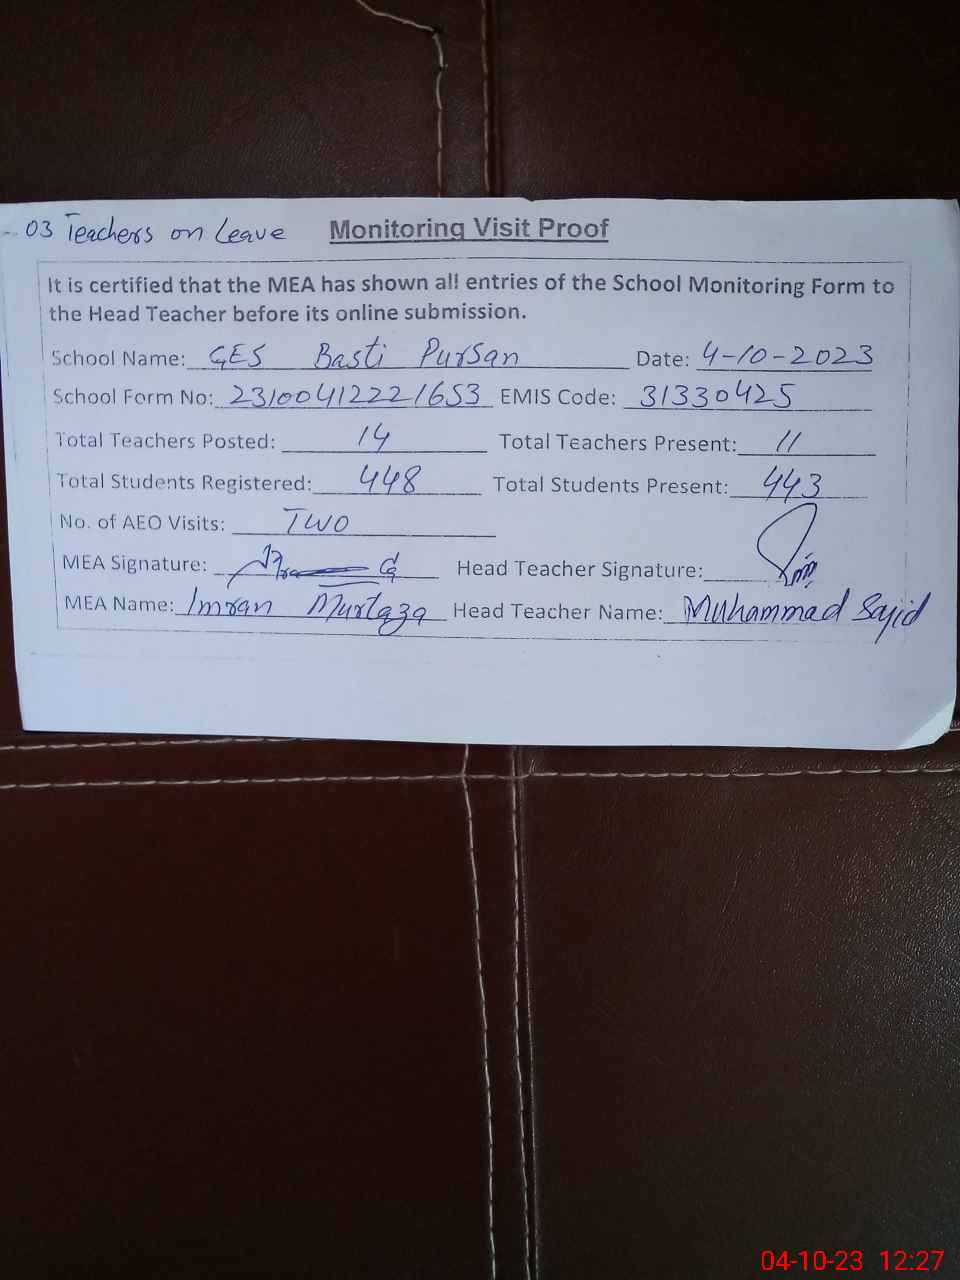 03 Teachers on Leave Monitoring Visit Proof
It is certified that the MEA has shown all entries of the School Monitoring Form to
the Head Teacher before its online submission.
School Name: GES Basti Pursan Date: 4-10-2023
School Form No: 231004122221653 EMIS Code: 31330425
Total Teachers Posted: 14 Total Teachers Present: 11
Total Students Registered: 448 Total Students Present: 443
No. of AEO Visits: TWO
MEA Signature: Head Teacher Signature:
MEA Name: Imran Murtaza Head Teacher Name: Muhammad Sajid
04-10-23 12:27